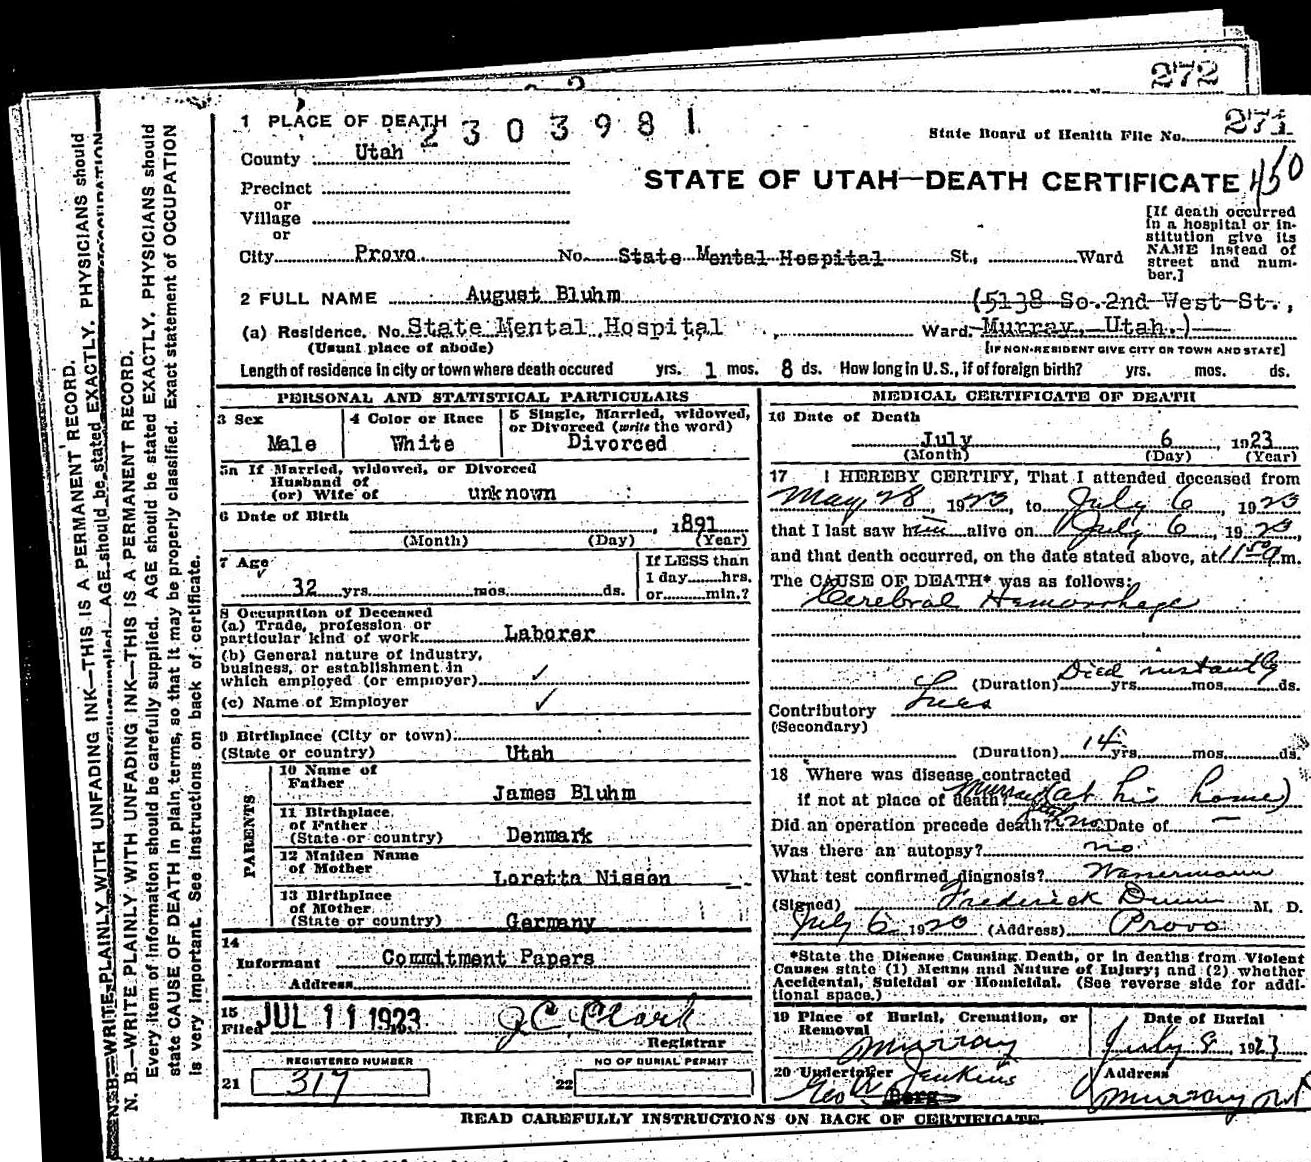 272
1 PLACE OF DEATH
2303981
State Board of Health File No. 271
County Utah
450
STATE OF UTAH—DEATH CERTIFICATE
Precinct
or
Village
or
City Provo No. State Mental Hospital St., Ward
[If death occurred in a hospital or institution give its NAME instead of street and number.]
2 FULL NAME August Bluhm (5138 So. 2nd West St.,
(a) Residence. No. State Mental Hospital Ward, Murray, Utah.)
(Usual place of abode) [IF NON-RESIDENT GIVE CITY OR TOWN AND STATE]
Length of residence in city or town where death occured yrs. 1 mos. 8 ds. How long in U.S., if of foreign birth? yrs. mos. ds.
PERSONAL AND STATISTICAL PARTICULARS
3 Sex
Male
4 Color or Race
White
5 Single, Married, widowed,
or Divorced (write the word)
Divorced
5a If Married, widowed, or Divorced
Husband of
(or) Wife of unknown
6 Date of Birth 1891
(Month) (Day) (Year)
7 Age
32 yrs. mos. ds.
If LESS than
1 day hrs.
or min.?
8 Occupation of Deceased
(a) Trade, profession or
particular kind of work Laborer
(b) General nature of industry,
business, or establishment in
which employed (or employer) ✓
(c) Name of Employer ✓
9 Birthplace (City or town)
(State or country) Utah
PARENTS
10 Name of
Father James Bluhm
11 Birthplace
of Father
(State or country) Denmark
12 Maiden Name
of Mother Loretta Nissen
13 Birthplace
of Mother
(State or country) Germany
14
Informant Commitment Papers
Address
15
Filed JUL 11 1923 J C Clark
Registrar
REGISTERED NUMBER NO OF BURIAL PERMIT
21 317 22
MEDICAL CERTIFICATE OF DEATH
16 Date of Death
July 6 1923
(Month) (Day) (Year)
17 I HEREBY CERTIFY, That I attended deceased from
May 28, 1923, to July 6, 1923
that I last saw him alive on July 6, 1923,
and that death occurred, on the date stated above, at 11 50 a m.
The CAUSE OF DEATH* was as follows:
Cerebral Hemorrhage
Died instantly
(Duration) yrs. mos. ds.
Contributory Lues
(Secondary)
(Duration) 14 yrs. mos. ds.
18 Where was disease contracted
if not at place of death? Murray (at his home)
Did an operation precede death? no Date of
Was there an autopsy? no
What test confirmed diagnosis? Wassermann
(Signed) Frederick Dunn M. D.
July 6 1920 (Address) Provo
*State the Disease Causing Death, or in deaths from Violent
Causes state (1) Means and Nature of Injury; and (2) whether
Accidental, Suicidal or Homicidal. (See reverse side for addi-
tional space.)
19 Place of Burial, Cremation, or
Removal
Murray
Date of Burial
July 8 1923
20 Undertaker
Geo Jenkins
Berg
Address
Murray
READ CAREFULLY INSTRUCTIONS ON BACK OF CERTIFICATE.
N. B.—WRITE PLAINLY WITH UNFADING INK—THIS IS A PERMANENT RECORD.
Every item of information should be carefully supplied. AGE should be stated EXACTLY. PHYSICIANS should
state CAUSE OF DEATH in plain terms, so that it may be properly classified. Exact statement of OCCUPATION
is very important. See instructions on back of certificate.